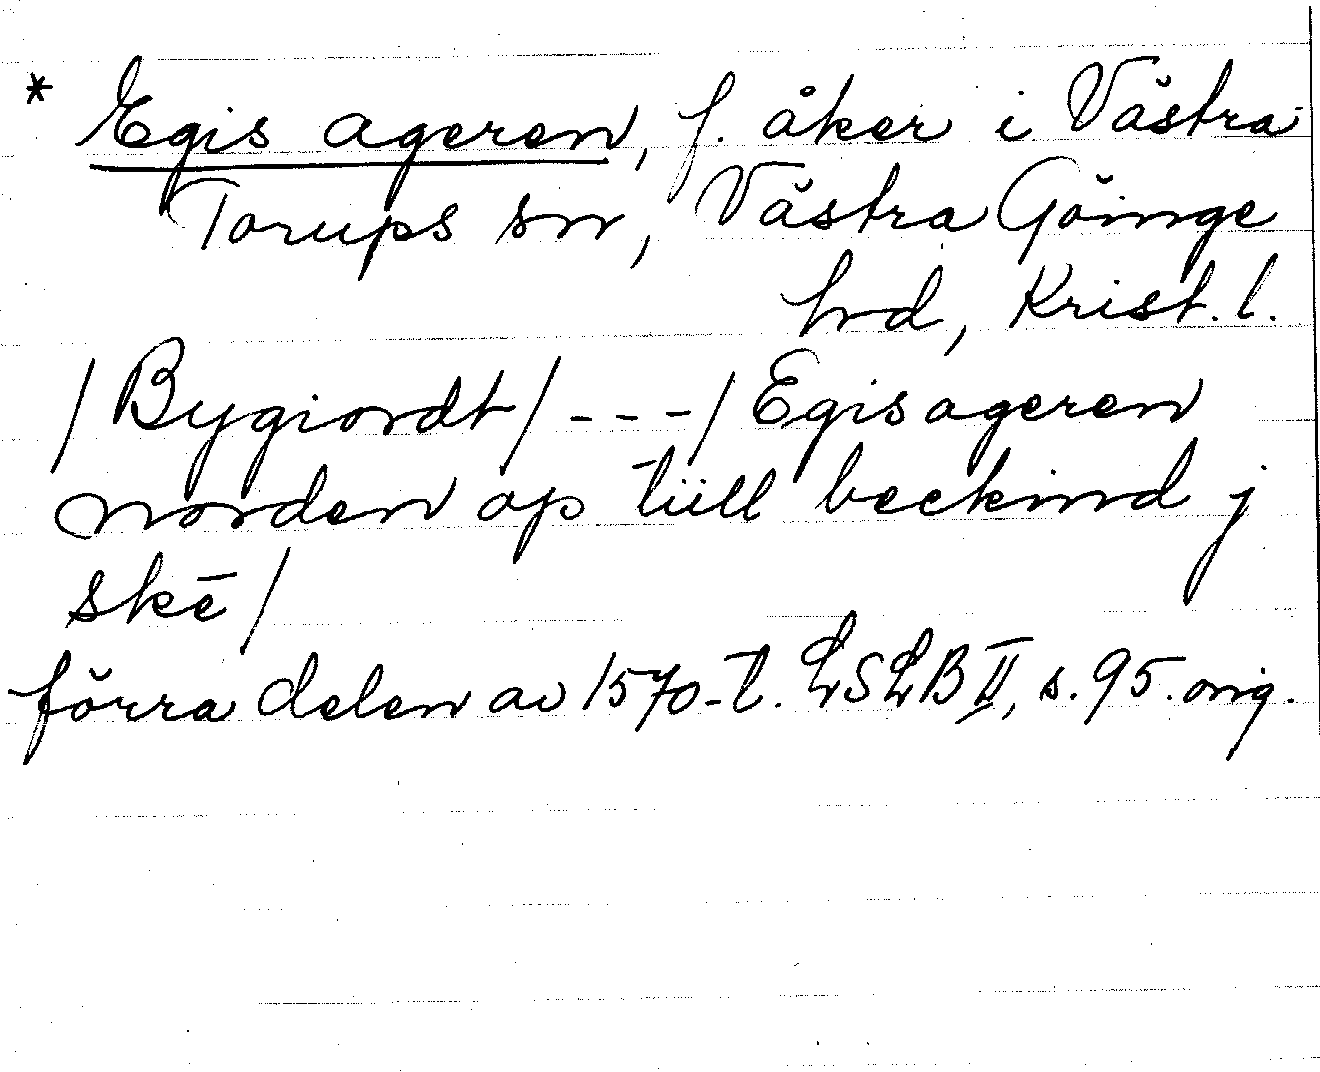 * Egis ageren, f. åker i Västra
Torups sn, Västra Göinge
hrd, Krist. l.
/Bygiordt/ - - - / Egisageren
norden op tüll beckind j
skē/
förra delen av 1570-t. LSLB II, s. 95. orig.